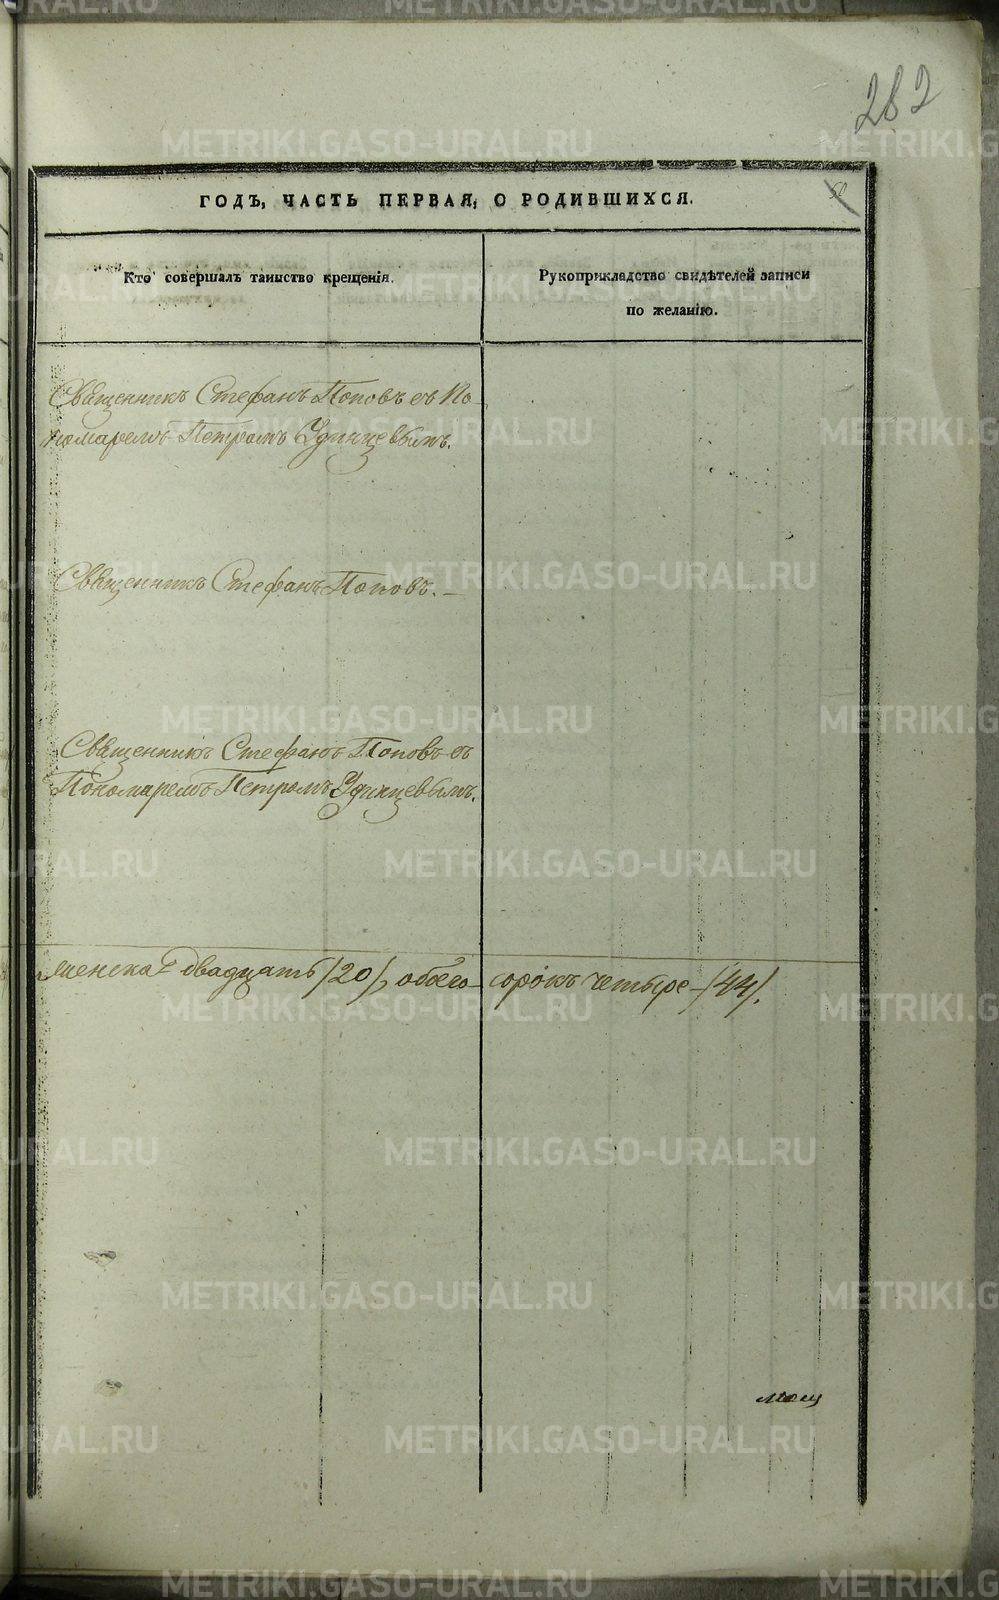 282
ГОДЪ, ЧАСТЬ ПЕРВАЯ, О РОДИВШИХСЯ.
Кто совершалъ таинство крещенія.
Рукоприкладство свидѣтелей записи
по желанію.
Священникъ Стефанъ Поповъ съ По
номаремъ Петромъ Удинцевымъ.
Священникъ Стефанъ Поповъ. —
Священникъ Стефанъ Поповъ съ
Пономаремъ Петромъ Удинцевымъ.
женска двадцать /20/, обоего сорокъ четыре /44/.
METRIKI.GASO-URAL.RU